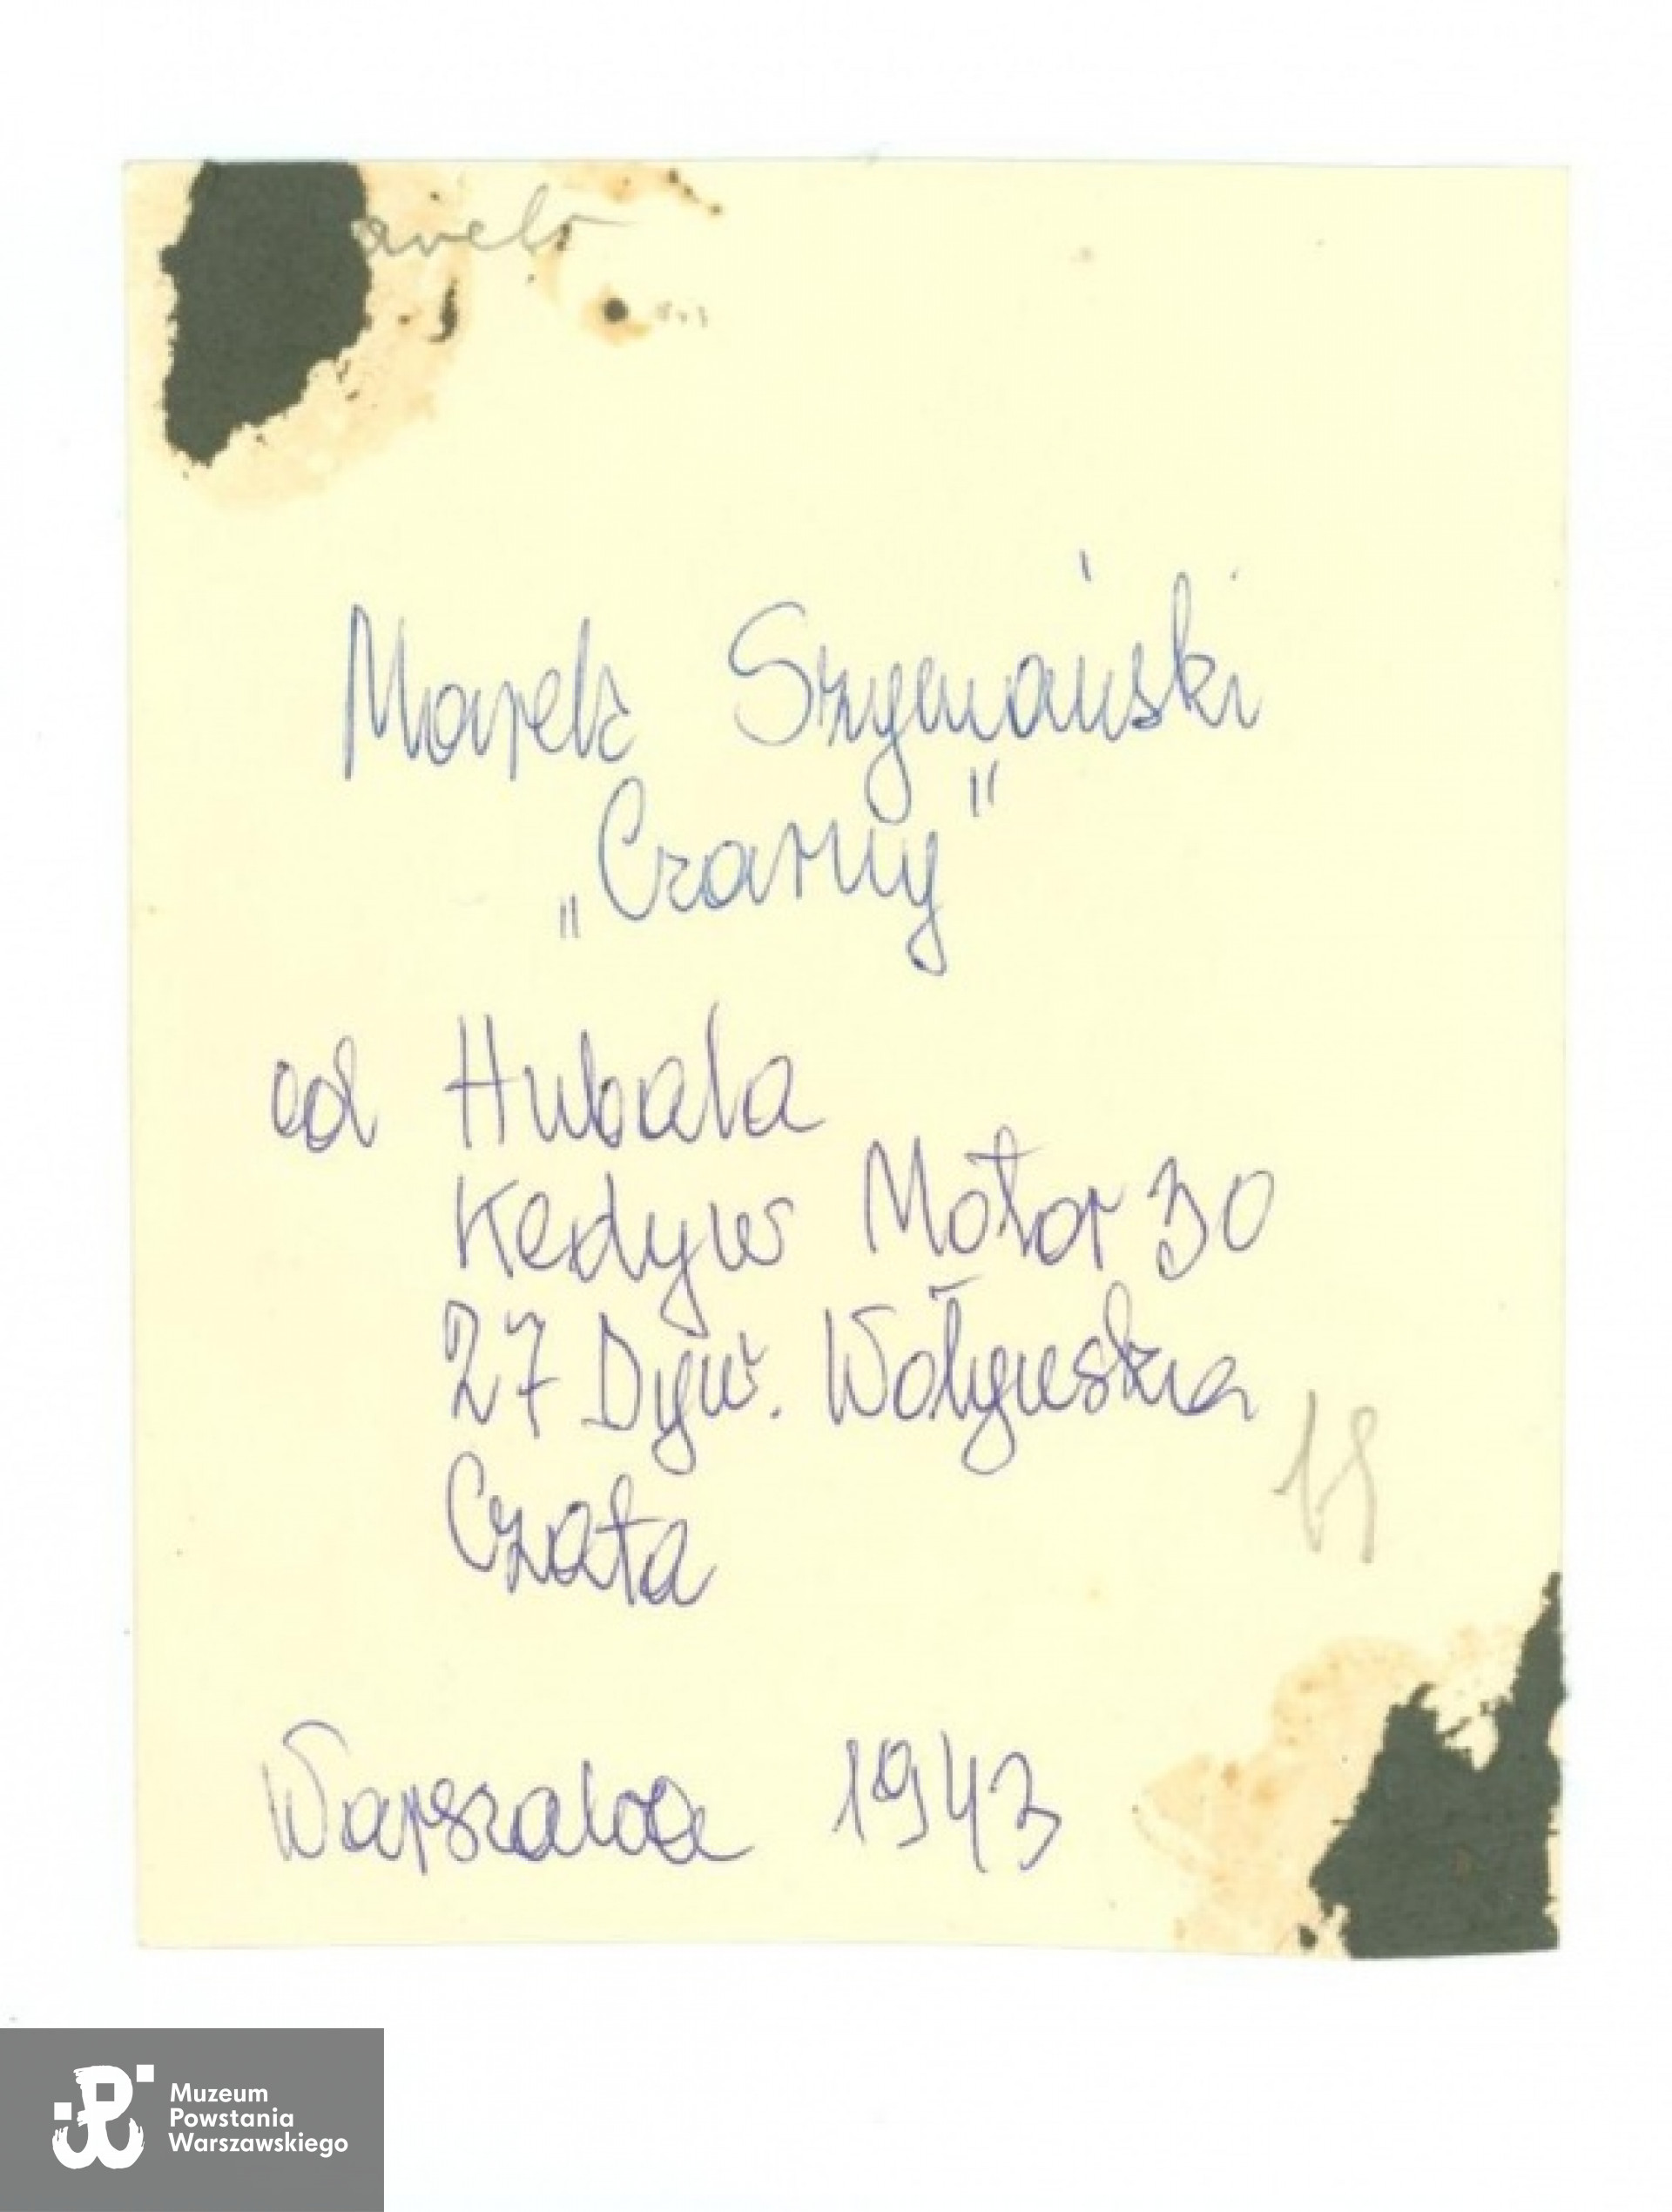 Marek Szymański
„Czarny"
od Hubala
Kedyw Motor 30
27 Dyw. Wołyńska
Czata
Warszawa 1943
Muzeum
Powstania
Warszawskiego